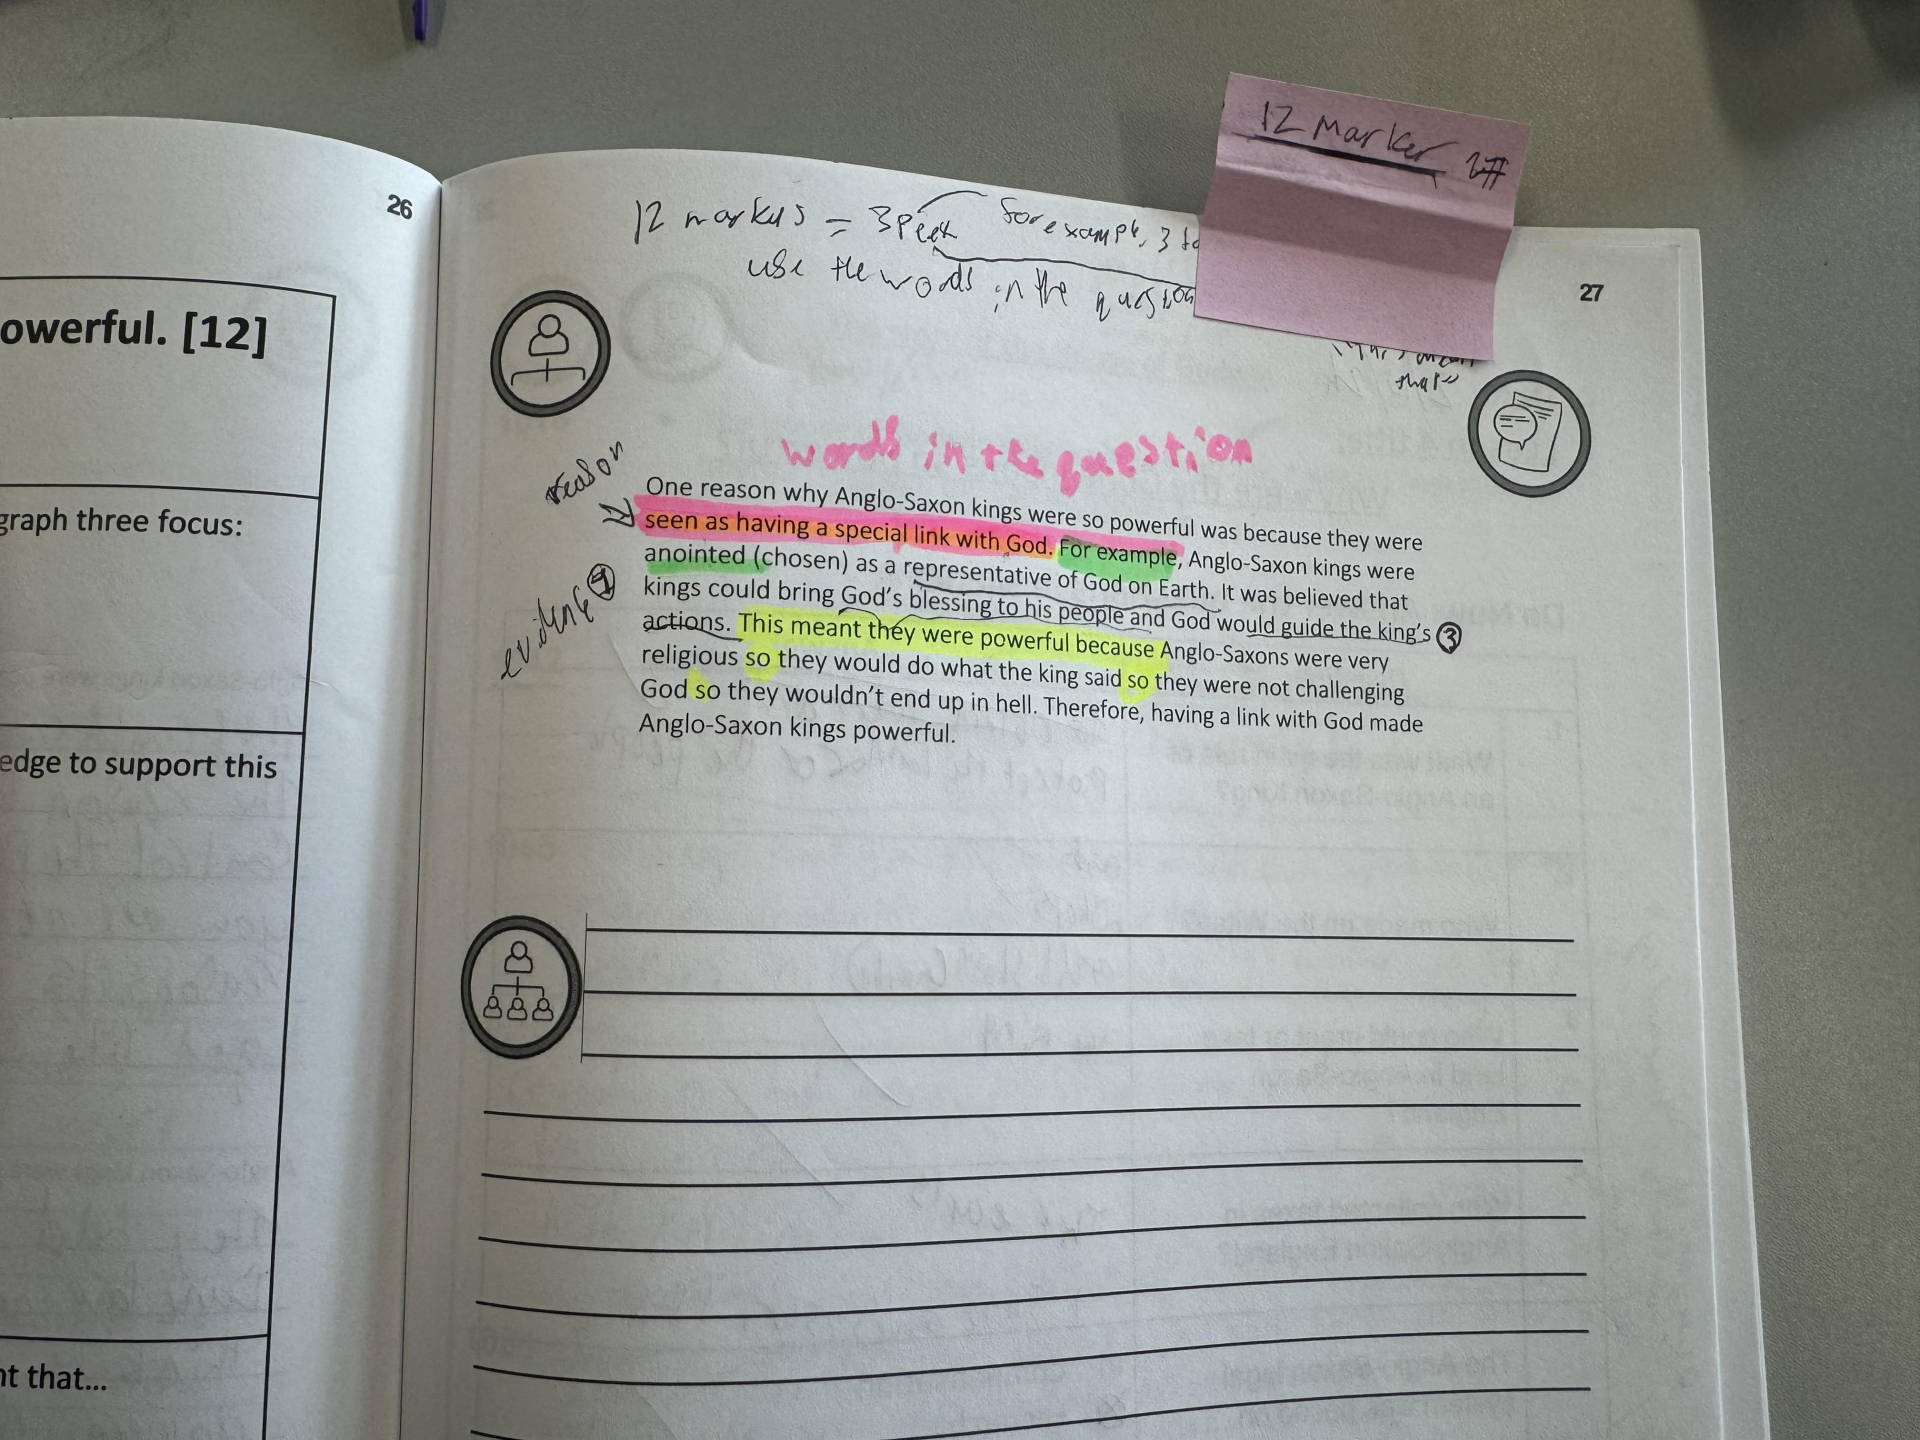 12 Marker
26
12 markes = 3 Peek for example, 3
use the words in the question
27
that
owerful. [12]
words in the question
reason
One reason why Anglo-Saxon kings were so powerful was because they were
seen as having a special link with God. For example, Anglo-Saxon kings were
anointed (chosen) as a representative of God on Earth. It was believed that
kings could bring God's blessing to his people and God would guide the king's
actions. This meant they were powerful because Anglo-Saxons were very
religious so they would do what the king said so they were not challenging
God so they wouldn't end up in hell. Therefore, having a link with God made
Anglo-Saxon kings powerful.
3
evidence
graph three focus:
edge to support this
nt that...